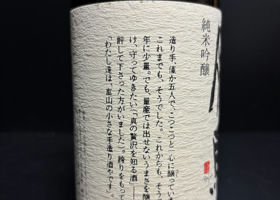 純米吟醸
造り手、僅か五人で、こつこつと心に醸してい
これまでも、そうでした。これからも、そう
年に少量。でも、量産では出せないうまさを醸
け、守ってゆきたい「真の贅沢を知る酒
酔して下さった方がいました」。誇りをもって
「わたし達は、富山の小さな手造り酒やです。